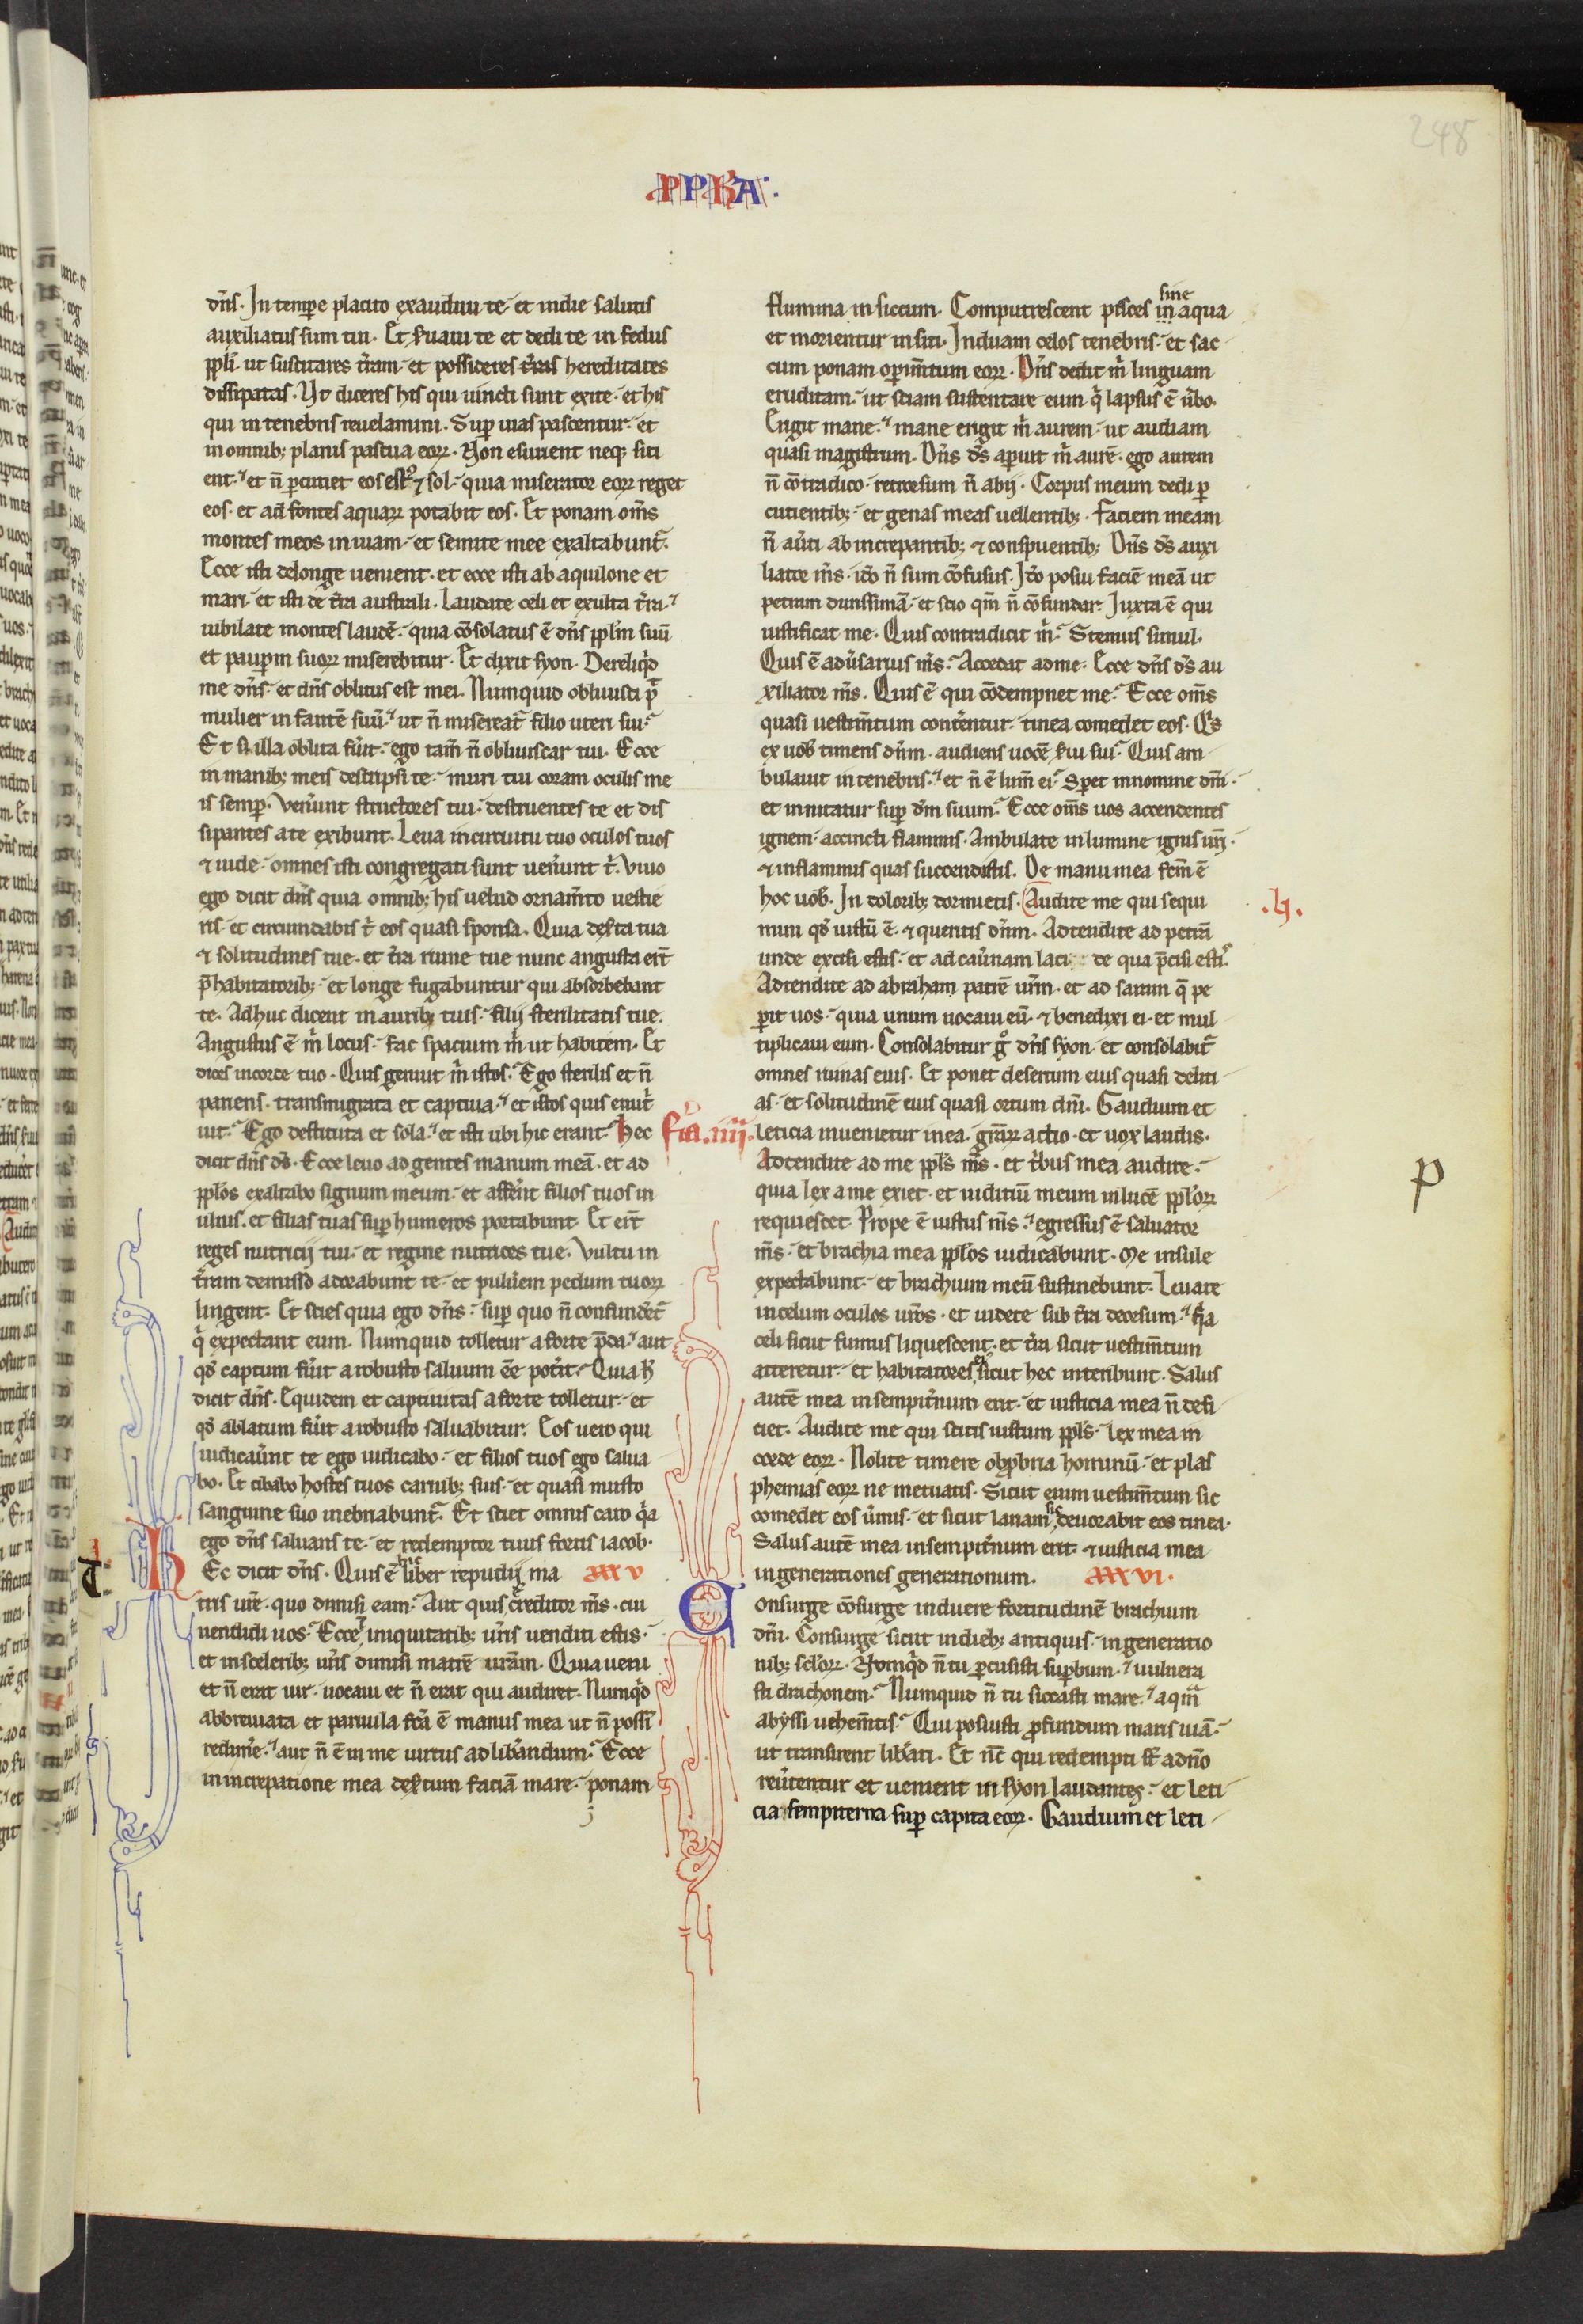 248
PPHA
dn̄s. In tempore placito exaudiui te. et in die salutis
auxiliatus sum tui. Et ẜuaui te et dedi te in fedus
pp̄li. ut suscitares t̄ram. et possideres t̄ras hereditates
dissipatas. Ut diceres his qui uincti sunt exite. et his
qui in tenebris reuelamini. Sup uias pascentur. et
in omnib; planis pascua eoꝝ. Non esurient neq; siti
ent. et n̄ ꝑcutiet eos est᷒ ⁊ sol. quia miserator eoꝝ reget
eos. et ad fontes aquaꝝ potabit eos. Et ponam om̄s
montes meos in uiam. et semite mee exaltabunt᷑.
Ecce isti de longe uenient. et ecce isti ab aquilone et
mari. et isti de t̄ra australi. Laudate celi et exulta t̄ra.
iubilate montes laudē. quia cōsolatus ē dn̄s pp̄lm suū
et paupm suoꝝ miserebitur. Et dixit syon. Dereliqͥd
me dn̄s. et dn̄s oblitus est mei. Numquid obliuisci p̄t
mulier infantē suū. ut n̄ misereat᷑ filio uteri sui.
Et si illa oblita fu̾it. ego tam̄ n̄ obliuiscar tui. Ecce
in manib; meis descripsi te. muri tui coram oculis me
is semꝑ. Ven̾unt structores tui. destruentes te et dis
sipantes a te exibunt. Leua in circuitu tuo oculos tuos
⁊ uide. omnes isti congregati sunt uen̾unt tͥ. Viuo
ego dicit dn̄s quia omnib; his uelud ornam̄to uestie
ris. et circundabis tͥ eos quasi sponsa. Quia deẜta tua
⁊ solitudines tue. et t̄ra ruine tue nunc angusta er̄t
p̄ habitatorib;. et longe fugabuntur qui absorbebant
te. Adhuc dicent in aurib; tuis. filij sterilitatis tue.
Angustus ē mͥ locus. fac spacium mͥ ut habitem. Et
dices in corde tuo. Quis genuit mͥ istos. Ego sterilis et n̄
pariens. transmigrata et captiua. et istos quis enut͛
iuit. Ego destituta et sola. et isti ubi hic erant. Hec
fīa.iiij.
dicit dn̄s ds̄. Ecce leuo ad gentes manum meā. et ad
pp̄los exaltabo signum meum. et affer̾nt filios tuos in
ulnis. et filias tuas sup humeros portabunt. Et er̄t
reges nutricij tui. et regine nutrices tue. Vultu in
t̄ram demisso adorabunt te. et pulu̾em pedum tuoꝝ
lingent. Et scies quia ego dn̄s. sup quo n̄ confundet᷑
qͥ expectant eum. Numquid tolletur a forte p̄da. aut
qd̾ captum fu̾it a robusto saluum ēe pot̾it. Quia h̾
dicit dn̄s. Equidem et captiuitas a forte tolletur. et
qd̾ ablatum fu̾it a robusto saluabitur. Eos uero qui
iudicau̾nt te ego iudicabo. et filios tuos ego salua
bo. Et cibabo hostes tuos carnib; suis. et quasi musto
sanguine suo inebriabunt᷑. Et sciet omnis caro qͥa
ego dn̄s saluans te. et redemptor tuus fortis iacob.
t
Hec dicit dn̄s. Quis ē hic liber repudij ma xxxv
tris ur̄e. quo dimisi eam. Aut quis creditor m̄s. cui
uendidi uos. Ecce iniquitatib; ur̄is uenditi estis.
et in scelerib; ur̄is dimisi matrē uram̄. Quia ueni
et n̄ erat uir. uocaui et n̄ erat qui audiret. Numqͥd
abbreuiata et paruula fc̄a ē manus mea ut n̄ possī
redim̾e. aut n̄ ē in me uirtus ad lib̾andum. Ecce
in increpatione mea deẜtum faciā mare. ponam
flumina in siccum. Computrescent pisces in sine aqua
et morientur in siti. Induam celos tenebris. et sac
cum ponam opim̄tum eoꝝ. Dn̄s dedit mͥ linguam
eruditam. ut sciam sustentare eum qͥ lapsus ē u̾bo.
Erigit mane. mane erigit mͥ aurem. ut audiam
quasi magistrum. Dn̄s ds̄ aꝑuit mͥ aurē. ego autem
n̄ cōtradico. retrorsum n̄ abij. Corpus meum dedi ꝑ
cutientib;. et genas meas uellentib;. faciem meam
n̄ au̾ti ab increpantib; ⁊ conspuentib;. Dn̄s ds̄ auxi
liator m̄s. ido n̄ sum cōfusus. Ido posui faciē meā ut
petram durissimā. et scio qm̄ n̄ cōfundar. Iuxta ē qui
iustificat me. Quis contradicit mͥ. Stemus simul.
Quis ē adu̾sarius m̄s. Accedat ad me. Ecce dn̄s ds̄ au
xiliator m̄s. Quis ē qui cōdempnet me. Ecce om̄s
quasi uestim̄tum cont̾entur. tinea comedet eos. Qͥs
ex uob̄ timens dn̄m. audiens uocē ẜui sui. Quis am
bulauit in tenebris. et n̄ ē lum̄ ei. Speret in nomine dn̄i.
et innitatur sup dm̄ suum. Ecce om̄s uos accendentes
ignem. accincti flammis. Ambulate in lumine ignis ur̄i.
⁊ in flammis quas succendistis. De manu mea fc̄m ē
hoc uob̄. In dolorib; dormietis. Audite me qui sequi
.h.
mini qd̾ iustū ē. ⁊ queritis dn̄m. Adtendite ad petrā
unde excisi estis. et ad cau̾nam laci de qua p̄cisi estis.
Adtendite ad abraham patrē ur̄m. et ad saram q̄ pe
ꝑit uos. quia unum uocaui eū. ⁊ benedixi ei. et mul
tiplicaui eum. Consolabitur gͦ dn̄s syon. et consolabit᷑
omnes ruinas eius. Et ponet desertum eius quasi delici
as. et solitudinē eius quasi ortum dn̄i. Gaudium et
leticia inuenietur in ea. gr̄aꝝ actio. et uox laudis.
Adtendite ad me pp̄ls m̄s. et t̾bus mea audite.
quia lex a me exiet. et iudiciū meum in lucē pp̄loꝝ
p
requiescet. Prope ē iustus m̄s. egressus ē saluator
m̄s. et brachia mea pp̄los iudicabunt. Me insule
expectabunt. et brachium meū sustinebunt. Leuate
in celum oculos ur̄os. et uidete sub t̄ra deorsum. qͥa
celi sicut fumus liquescent. et t̄ra sicut uestim̄tum
atteretur. et habitatores ei᷒ sicut hec interibunt. Salus
autē mea in sempit̾num erit. et iusticia mea n̄ defi
ciet. Audite me qui scitis iustum pp̄ls. lex mea in
corde eoꝝ. Nolite timere obprobria hominū. et blas
phemias eoꝝ ne metuatis. Sicut enim uestim̄tum sic
comedet eos u̾mis. et sicut lanam sic deuorabit eos tinea.
Salus autē mea in sempit̾num erit. ⁊ iusticia mea
in generationes generationum. xxxvi.
Consurge cōsurge induere fortitudinē brachium
dn̄i. Consurge sicut in dieb; antiquis. in generatio
nib; scl̾oꝝ. Nomqͥd n̄ tu ꝑcussisti supbum. uulnera
sti drachonem. Numquid n̄ tu siccasti mare. aqm̄
abyssi uehem̄tis. Qui posuisti ꝓfundum maris uiā.
ut transirent lib̾ati. Et nc̄ qui redempti st̄ a dn̄o
reu̾tentur et uenient in syon laudantes. et leti
cia sempiterna sup capita eoꝝ. Gaudium et leti